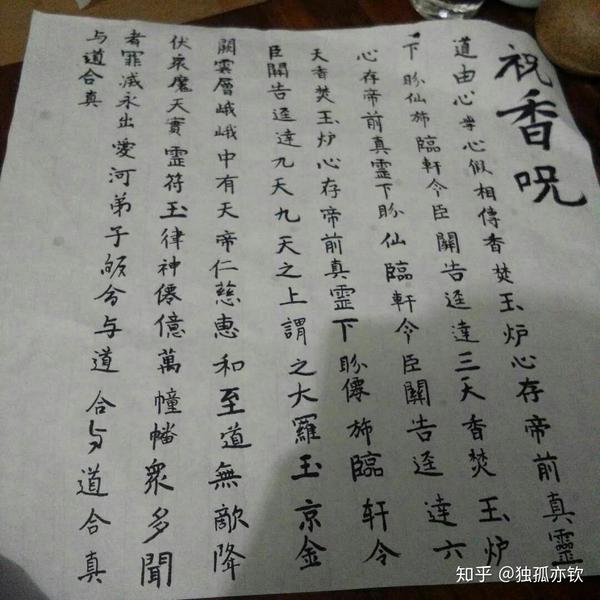 祝香呪
道由心学心似相傳香焚玉炉心存帝前真靈
下盼仙旆臨軒令臣關告逕達三天香焚玉炉
心存帝前真靈下盼仙臨軒令臣關告逕達六
天香焚玉炉心存帝前真靈下盼僊旆臨軒令
臣關告逕達九天九天之上謂之大羅玉京金
闕雲層峨峨中有天帝仁慈惠和至道無敵降
伏衆魔天寶靈符玉律神僊億萬幢幡衆多聞
者罪滅永出愛河弟子皈兮与道合与道合真
与道合真
知乎 @独孤亦钦